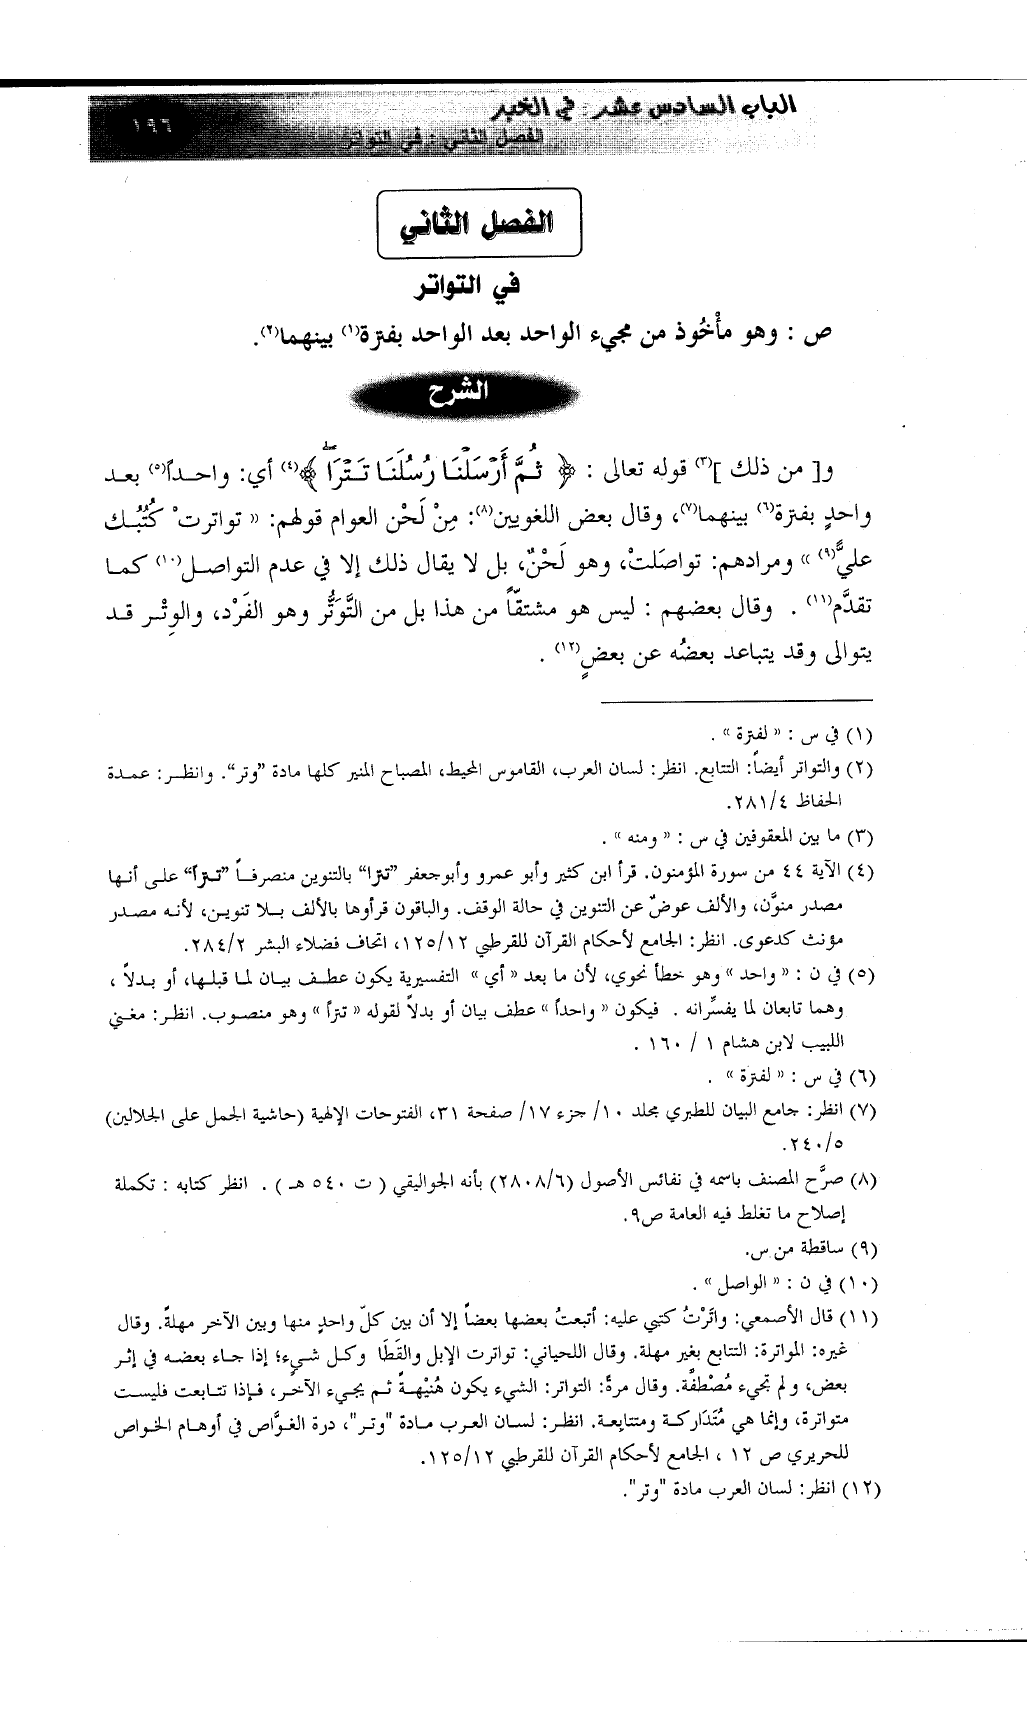 الباب السادس عشر : في الخبر
الفصل الثاني : في التواتر
١٩٦
الفصل الثاني
في التواتر
ص : وهو مأْخُوذ من مجيء الواحد بعد الواحد بفترة(١) بينهما(٢).
الشرح
و[ من ذلك ](٣) قوله تعالى : ﴿ ثُمَّ أَرْسَلْنَا رُسُلَنَا تَتْرَا ﴾(٤) أي: واحداً(٥) بعد
واحدٍ بفترة(٦) بينهما(٧)، وقال بعض اللغويين(٨): مِنْ لَحْن العوام قولهم: « تواترتْ كُتُبُك
عليَّ(٩) » ومرادهم: تواصَلتْ، وهو لَحْنٌ، بل لا يقال ذلك إلا في عدم التواصل(١٠) كما
تقدَّم(١١) . وقال بعضهم : ليس هو مشتقّاً من هذا بل من التَّوَتُّر وهو الفَرْد، والوِتْر قد
يتوالى وقد يتباعد بعضُه عن بعضٍ(١٢) .
(١) في س : « لفترة » .
(٢) والتواتر أيضاً: التتابع. انظر: لسان العرب، القاموس المحيط، المصباح المنير كلها مادة ”وتر“. وانظر: عمدة
الحفاظ ٢٨١/٤.
(٣) ما بين المعقوفين في س : « ومنه » .
(٤) الآية ٤٤ من سورة المؤمنون. قرأ ابن كثير وأبو عمرو وأبوجعفر ”تترا“ بالتنوين منصرفاً ”تتراً“ على أنها
مصدر منوَّن، والألف عوضٌ عن التنوين في حالة الوقف. والباقون قرأوها بالألف بلا تنوين، لأنه مصدر
مؤنث كدعوى. انظر: الجامع لأحكام القرآن للقرطبي ١٢٥/١٢، اتحاف فضلاء البشر ٢٨٤/٢.
(٥) في ن : « واحد » وهو خطأ نحوي، لأن ما بعد « أي » التفسيرية يكون عطف بيان لما قبلها، أو بدلاً ،
وهما تابعان لما يفسِّرانه . فيكون « واحداً » عطف بيان أو بدلاً لقوله « تتراً » وهو منصوب. انظر: مغني
اللبيب لابن هشام ١ / ١٦٠ .
(٦) في س : « لفترة » .
(٧) انظر: جامع البيان للطبري مجلد ١٠/ جزء ١٧/ صفحة ٣١، الفتوحات الإلهية (حاشية الجمل على الجلالين)
٢٤٠/٥.
(٨) صرَّح المصنف باسمه في نفائس الأصول (٢٨٠٨/٦) بأنه الجواليقي ( ت ٥٤٠ هـ ) . انظر كتابه : تكملة
إصلاح ما تغلط فيه العامة ص٩.
(٩) ساقطة من س.
(١٠) في ن : « الواصل » .
(١١) قال الأصمعي: واتَرْتُ كتبي عليه: أتبعتُ بعضها بعضاً إلا أن بين كلّ واحدٍ منها وبين الآخر مهلةً. وقال
غيره: المواترة: التتابع بغير مهلة. وقال اللحياني: تواترت الإبل والقَطَا وكل شيءٍ؛ إذا جاء بعضه في إثر
بعض، ولم تجيء مُصْطفَّة. وقال مرةً: التواتر: الشيء يكون هُنَيْهةً ثم يجيء الآخر، فإذا تتابعت فليست
متواترة، وإنما هي مُتَدَاركة ومتتابعة. انظر: لسان العرب مادة "وتر"، درة الغوَّاص في أوهام الخواص
للحريري ص ١٢ ، الجامع لأحكام القرآن للقرطبي ١٢٥/١٢.
(١٢) انظر: لسان العرب مادة "وتر".